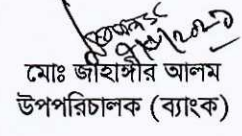 মোঃ জাহাঙ্গীর আলম
উপপরিচালক (ব্যাংক)